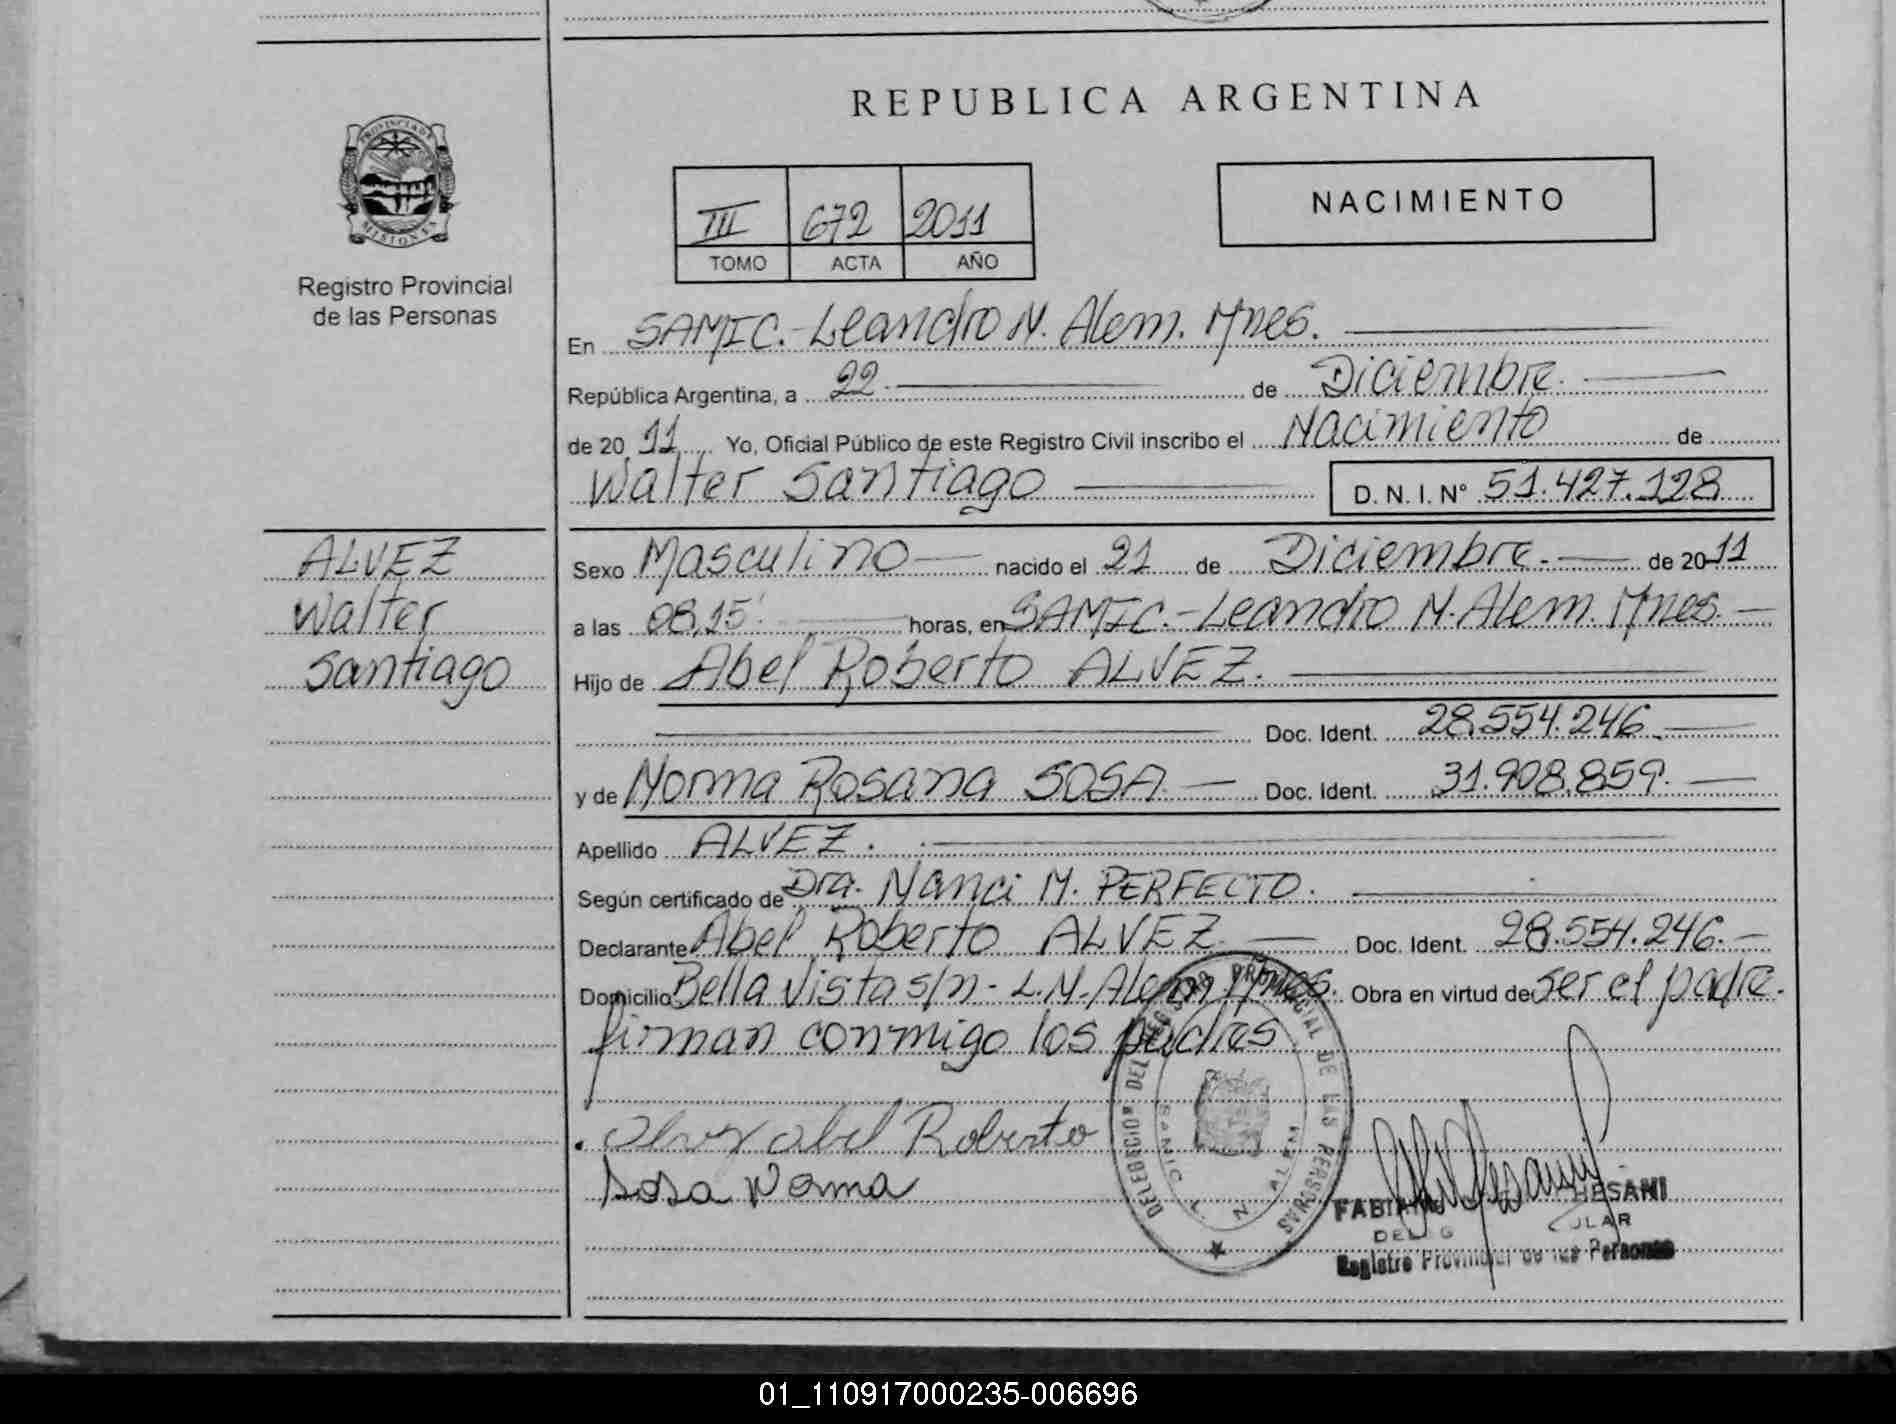 REPUBLICA ARGENTINA
PROVINCIA DE MISIONES
Registro Provincial
de las Personas
III 672 2011
TOMO ACTA AÑO
NACIMIENTO
En SAMIC.-Leandro N. Alem. Mnes.
República Argentina, a 22 de Diciembre.
de 20 11 Yo, Oficial Público de este Registro Civil inscribo el Nacimiento de
Walter Santiago D. N. I. N° 51.427.128
ALVEZ
Walter
Santiago
Sexo Masculino nacido el 21 de Diciembre. de 2011
a las 08,15' horas, en SAMIC.-Leandro N. Alem. Mnes.
Hijo de Abel Roberto ALVEZ.
Doc. Ident. 28.554.246.
y de Norma Rosana SOSA Doc. Ident. 31.908.859.
Apellido ALVEZ.
Según certificado de Dra. Nanci M. PERFECTO.
Declarante Abel Roberto ALVEZ Doc. Ident. 28.554.246.
Domicilio Bella Vista s/n - L.N. Alem Mnes. Obra en virtud de ser el padre.
firman conmigo los padres
Alvez abel Roberto
Sosa Norma
DEL REGISTRO PROVINCIAL DE LAS PERSONAS
SAMIC L. N. ALEM
Registro Provincial de las Personas
01_110917000235-006696